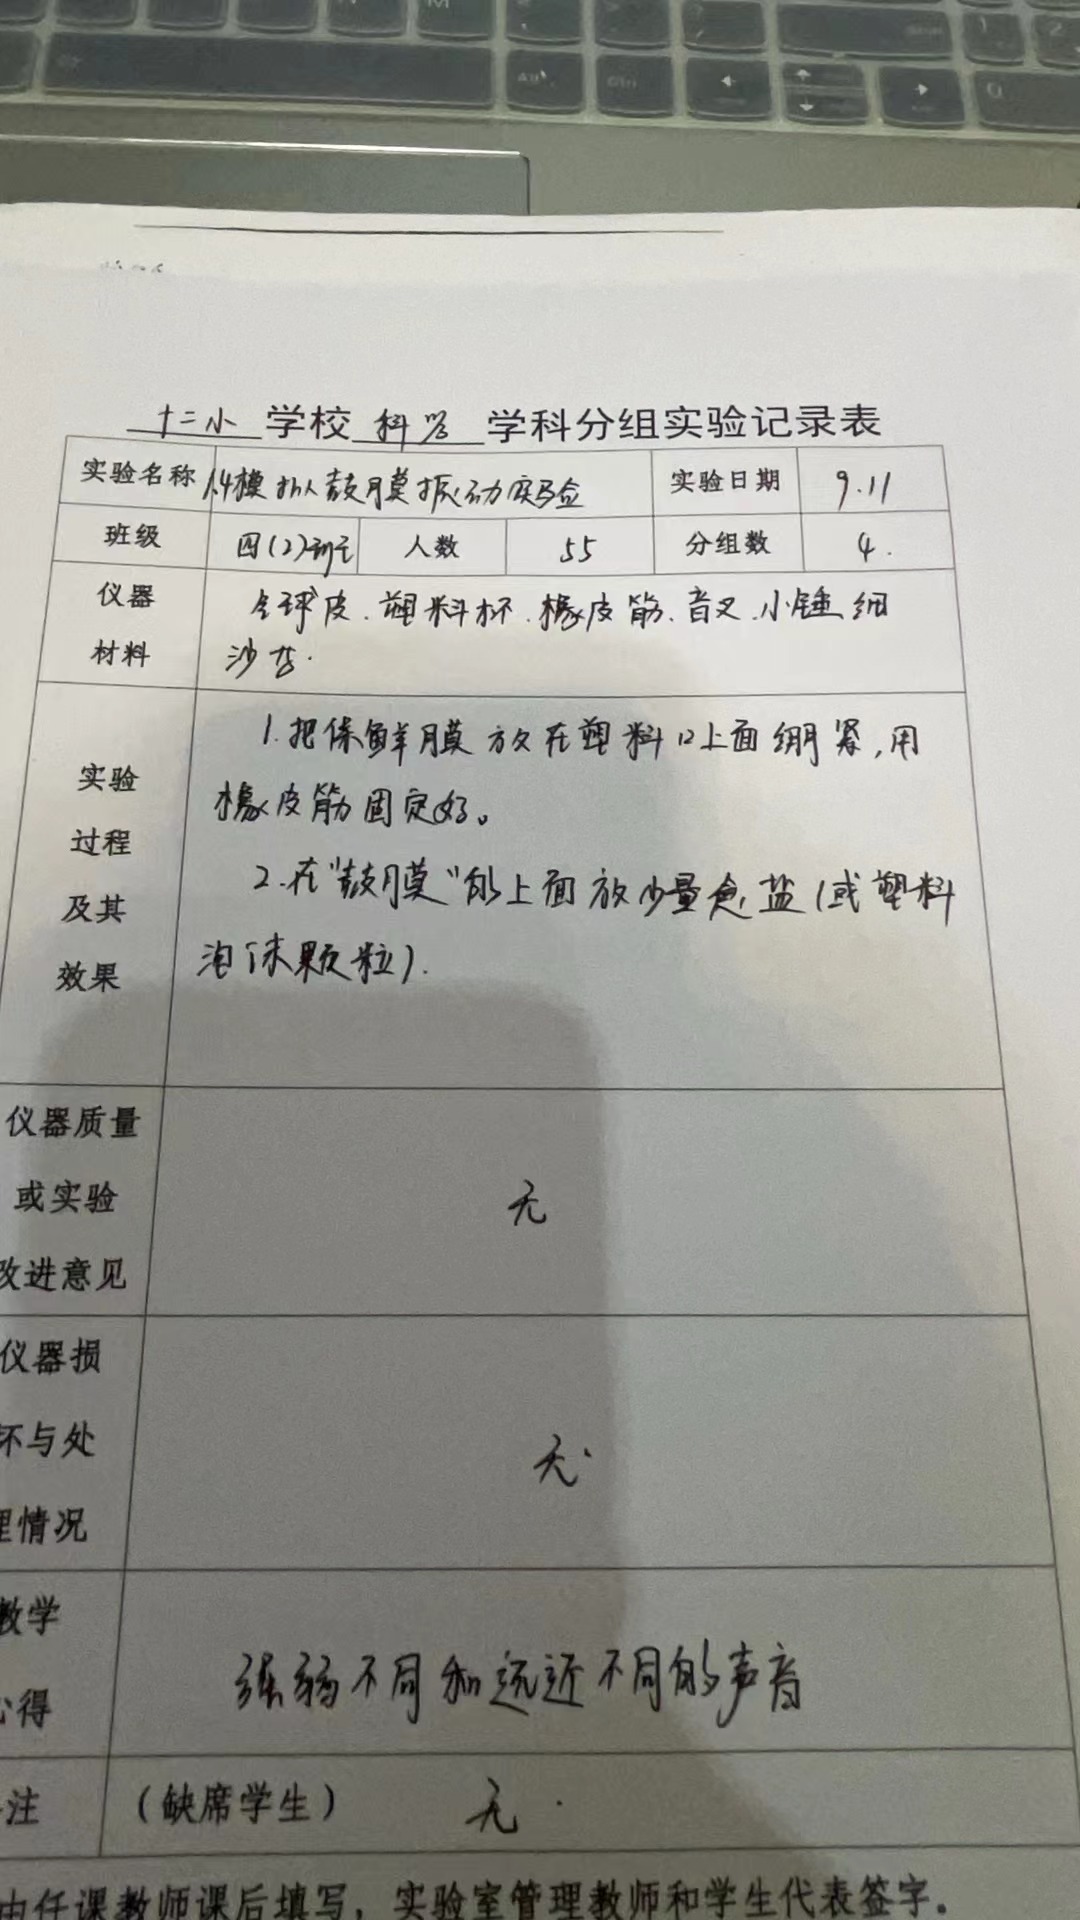 十二小 学校 科学 学科分组实验记录表
实验名称 1.4模拟鼓膜振动实验 实验日期 9.11
班级 四(2)班 人数 55 分组数 4.
仪器材料 球皮.塑料杯.橡皮筋.音叉.小锤细
沙.
实验过程及其效果
1.把保鲜膜放在塑料口上面绷紧,用
橡皮筋固定好。
2.在"鼓膜"的上面放少量食盐(或塑料
泡沫颗粒).
仪器质量
或实验 无
改进意见
仪器损
坏与处 无.
理情况
教学
心得 强弱不同和远近不同的声音
注 (缺席学生) 无.
由任课教师课后填写，实验室管理教师和学生代表签字.